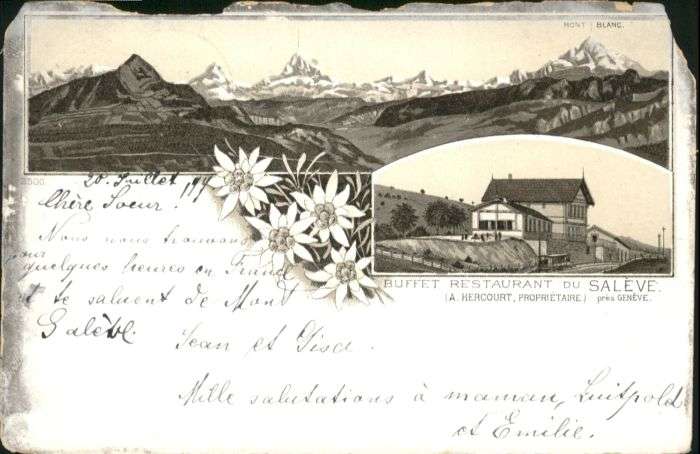 MONT BLANC.
20. Juillet
Chère Soeur.
Nous nous trouvons
pour
quelques heures en
et te saluent de Mont
Salève
Jean et
Mille salutations à maman, Luitpold
et Emilie.
BUFFET RESTAURANT DU SALÈVE.
(A. HERCOURT, PROPRIÉTAIRE) près GENÈVE.